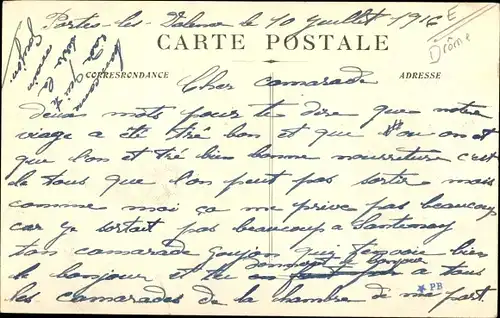 Portes-les-Valence le 10 juillet 1916
E
Drôme
CARTE POSTALE
CORRESPONDANCE
ADRESSE
Cher camarade
deux mots pour te dire que notre
viage a été tré bon et que l'on on et
que l'on et tré bien bonne nourriture c'est
de tous que l'on peut pas sortir mais
comme moi ça me prive pas beaucoup
car je sortait pas beaucoup a Santenay
ton camarade Goujon qui t'envoie bien
le bonjour et tu donneras le bonjour a tous
les camarades de la chambre de ma part.
PB